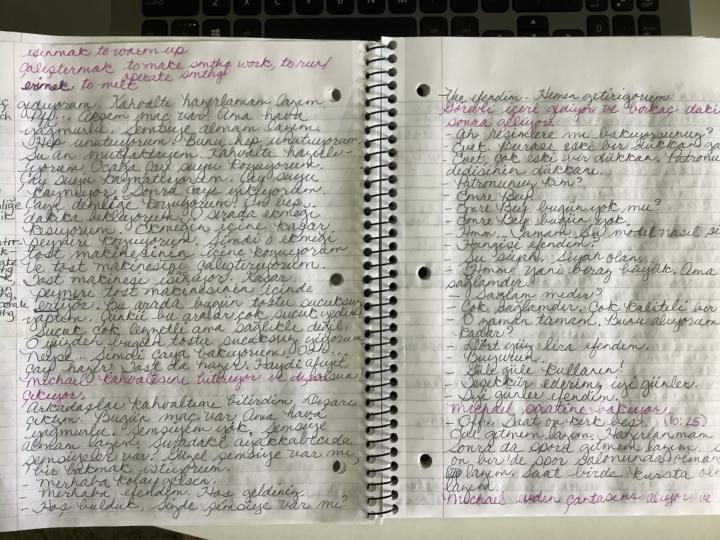 ısınmak to warm up
çalıştırmak to make smthg work, to run/
operate smthg
erimek to melt
gidiyorum. Kahvaltı hazırlamam lazım.
Off... Akşam maç var. Ama hava
yağmurlu. Şemsiye almam lazım.
Hep unutuyorum. Bunu hep unutuyorum.
Şu an mutfaktayım. Kahvaltı hazırlı-
yorum. Ocağa çay suyu koyuyorum.
Çay suyu kaynatıyorum. Çay suyu
kaynıyor. Sonra çayı yıkıyorum.
Çayı demliğe koyuyorum. On beş
dakika bekliyorum. O sırada ekmeği
kesiyorum. Ekmeğin içine kaşar
peyniri koyuyorum. Şimdi o ekmeği
tost makinesinin içine koyuyorum
ve tost makinesini çalıştırıyorum.
Tost makinesi ısınıyor. Kaşar
peyniri tost makinesinin içinde
eriyor. Bu arada bugün tostu sucuksuz
yaptım. Çünkü bu aralar çok sucuk yedim.
Sucuk çok lezzetli ama sağlıklı değil.
O yüzden bugün tostu sucuksuz yiyorum.
Neyse... Şimdi çaya bakıyorum. Ooo...
Çay hazır. Tost da hazır. Haydi afiyet
olsun
Michael kahvaltısını bitiriyor ve dışarı
çıkıyor.
Arkadaşlar kahvaltımı bitirdim. Dışarı
çıktım. Bugün maç var. Ama hava
yağmurlu. Şemsiyem yok. Şemsiye
almam lazım. Şuradaki ayakkabıcıda
şemsiyeler var. Güzel şemsiye var mı,
bir bakmak istiyorum.
- Merhaba kolay gelsin.
- Merhaba efendim. Hoş geldiniz.
- Hoş bulduk. Sizde şemsiye var mı?
efendim. Hemen getiriyorum.
Görevli içeri gidiyor ve birkaç daki
sonra geliyor.
- Ah resimlere mi bakıyorsunuz?
- Evet. Burası eski bir dükkan
- Evet, çok eski bir dükkan. Patronu
dedesinin dükkanı.
- Patronunuz kim?
- Emre Bey.
- Emre Bey bugün yok mu?
- Emre Bey bugün yok.
- Hmm... Tamam. Şu model nasıl
- Hangisi efendim?
- Şu siyah. Siyah olan.
- Hmmm yani biraz büyük. Ama
sağlamdır.
- Sağlam mıdır?
- Çok sağlamdır. Çok kaliteli bir
- O zaman tamam. Bunu alıyorum.
kadar?
- Dört yüz lira efendim.
- Buyurun.
- Güle güle kullanın!
- Teşekkür ederim, iyi günler.
- İyi günler efendim.
Michael saatine bakıyor.
- Off... Saat on kırk beş. (10:45)
Eve gitmem lazım. Hazırlanmam
sonra da spora gitmem lazım.
on bir de spor salonunda olmam
lazım. Saat birde kursta
lazım.
Michael evden çantasını alıyor ve